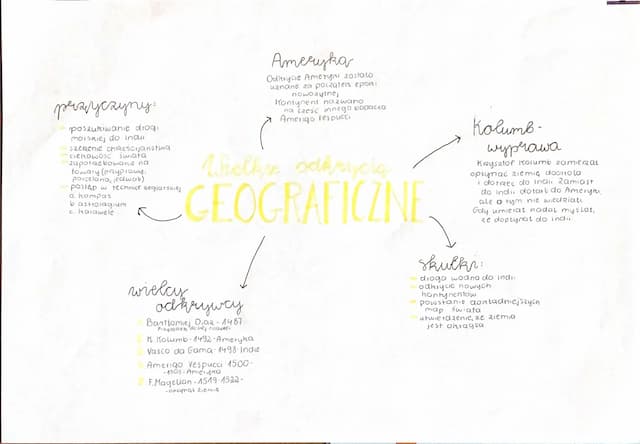 Wielkie odkrycia
GEOGRAFICZNE
Ameryka
Odkrycie Ameryki zostało
uznane za początek epoki
nowożytnej
Kontynent nazwano
na cześć innego badacza
Amerigo Vespucci
przyczyny:
poszukiwanie drogi
morskiej do Indii
szerzenie chrześcijaństwa
ciekawość świata
zapotrzebowanie na
towary (przyprawy,
porcelana, jedwab)
postęp w technice żeglarskiej
a. kompas
b. astrolabium
c. karawele
Kolumb-
wyprawa
Krzysztof Kolumb zamierzał
opłynąć ziemię dookoła
i dotrzeć do Indii. Zamiast
do Indii dotarł do Ameryki,
ale o tym nie wiedział.
Gdy umierał nadal myślał,
że dopłynął do Indii.
skutki:
droga wodna do Indii
odkrycie nowych
kontynentów
powstanie dokładniejszych
map świata
utwierdzenie, że ziemia
jest okrągła
wielcy
odkrywcy
Bartłomiej Diaz - 1487
Przylądek Dobrej Nadziei
K. Kolumb - 1492 - Ameryka
Vasco da Gama - 1498 Indie
Amerigo Vespucci 1500-
-1501 - Ameryka
F. Magellan - 1519-1522-
-opłynął Ziemię